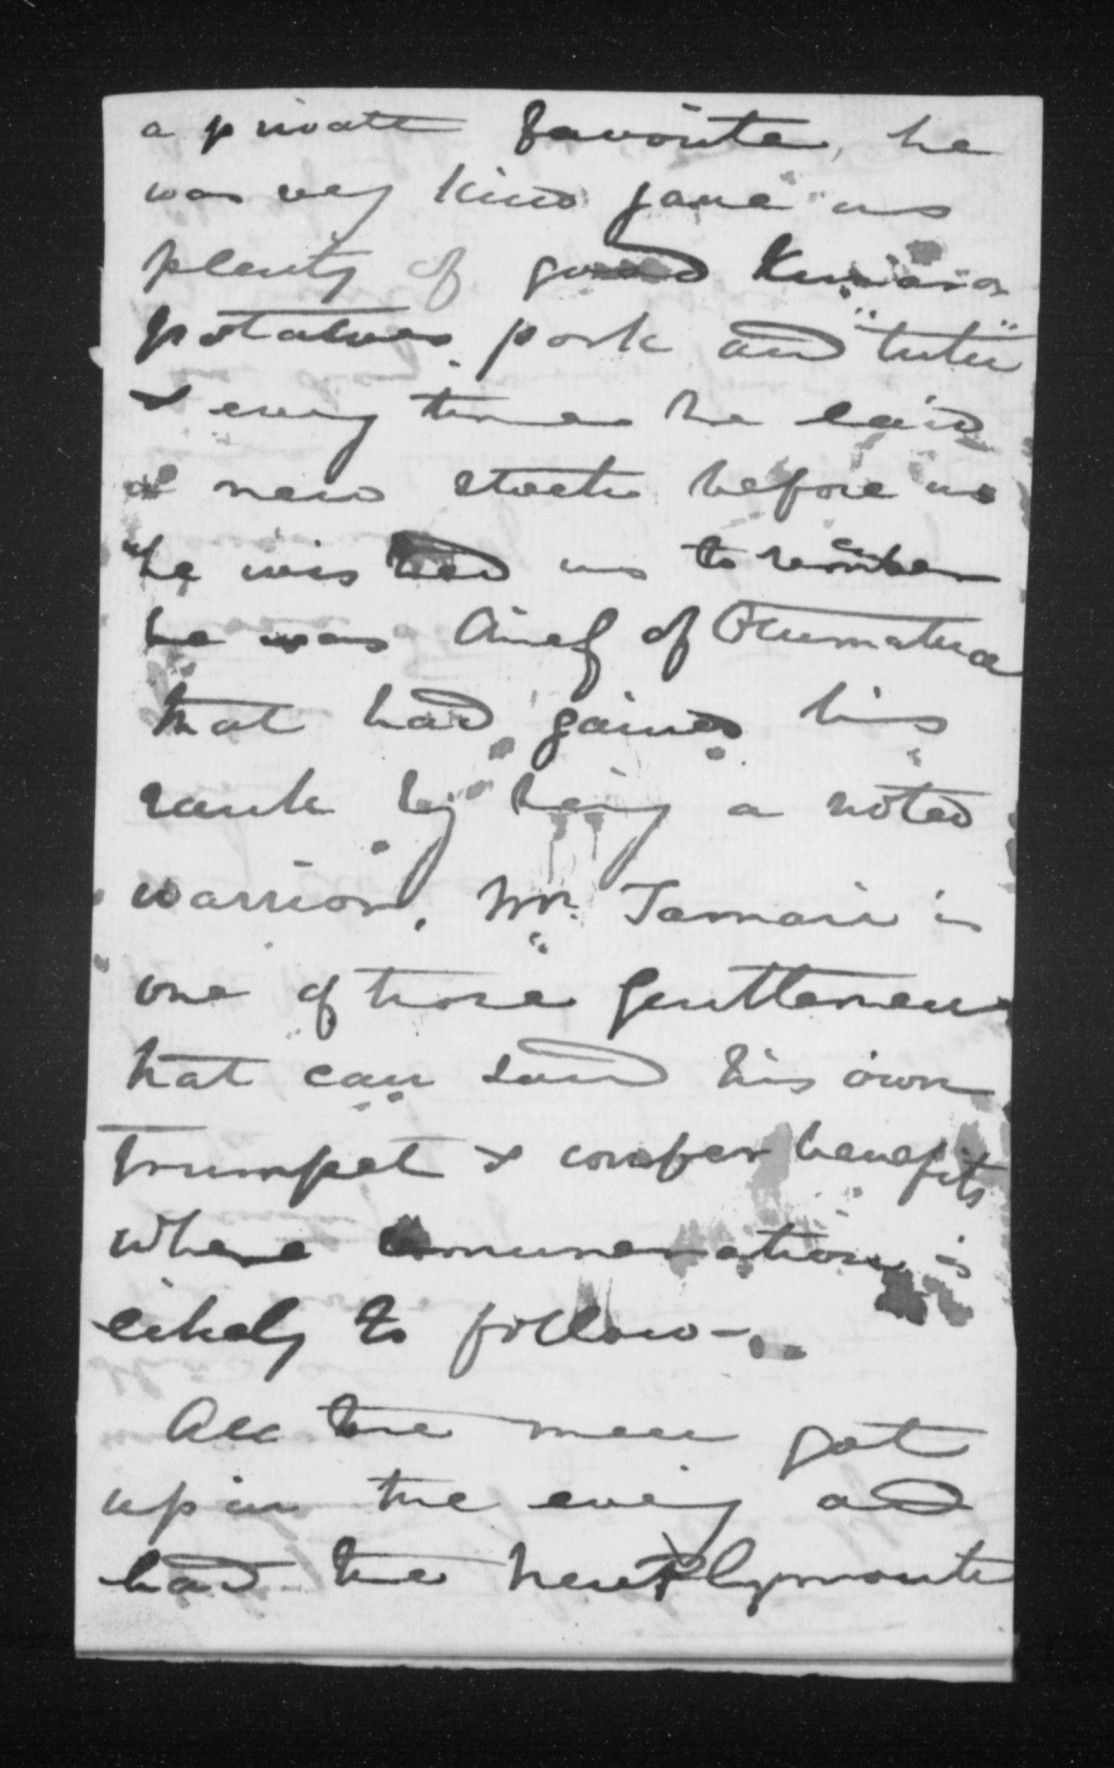 a private favorite, he
was very kind gave us
plenty of good Kumara
potatoes pork and "tutu"
& every time he laid
a new stock before us
"he wished us to remember
he was Chief of Orumatua
that had gained his
rank by being a noted
warrior. Mr. Tamaii is
one of those gentlemen
that can sound his own
trumpet & confer benefits
where remuneration is
likely to follow -
All the men got
up in the eveng and
had the New Plymouth